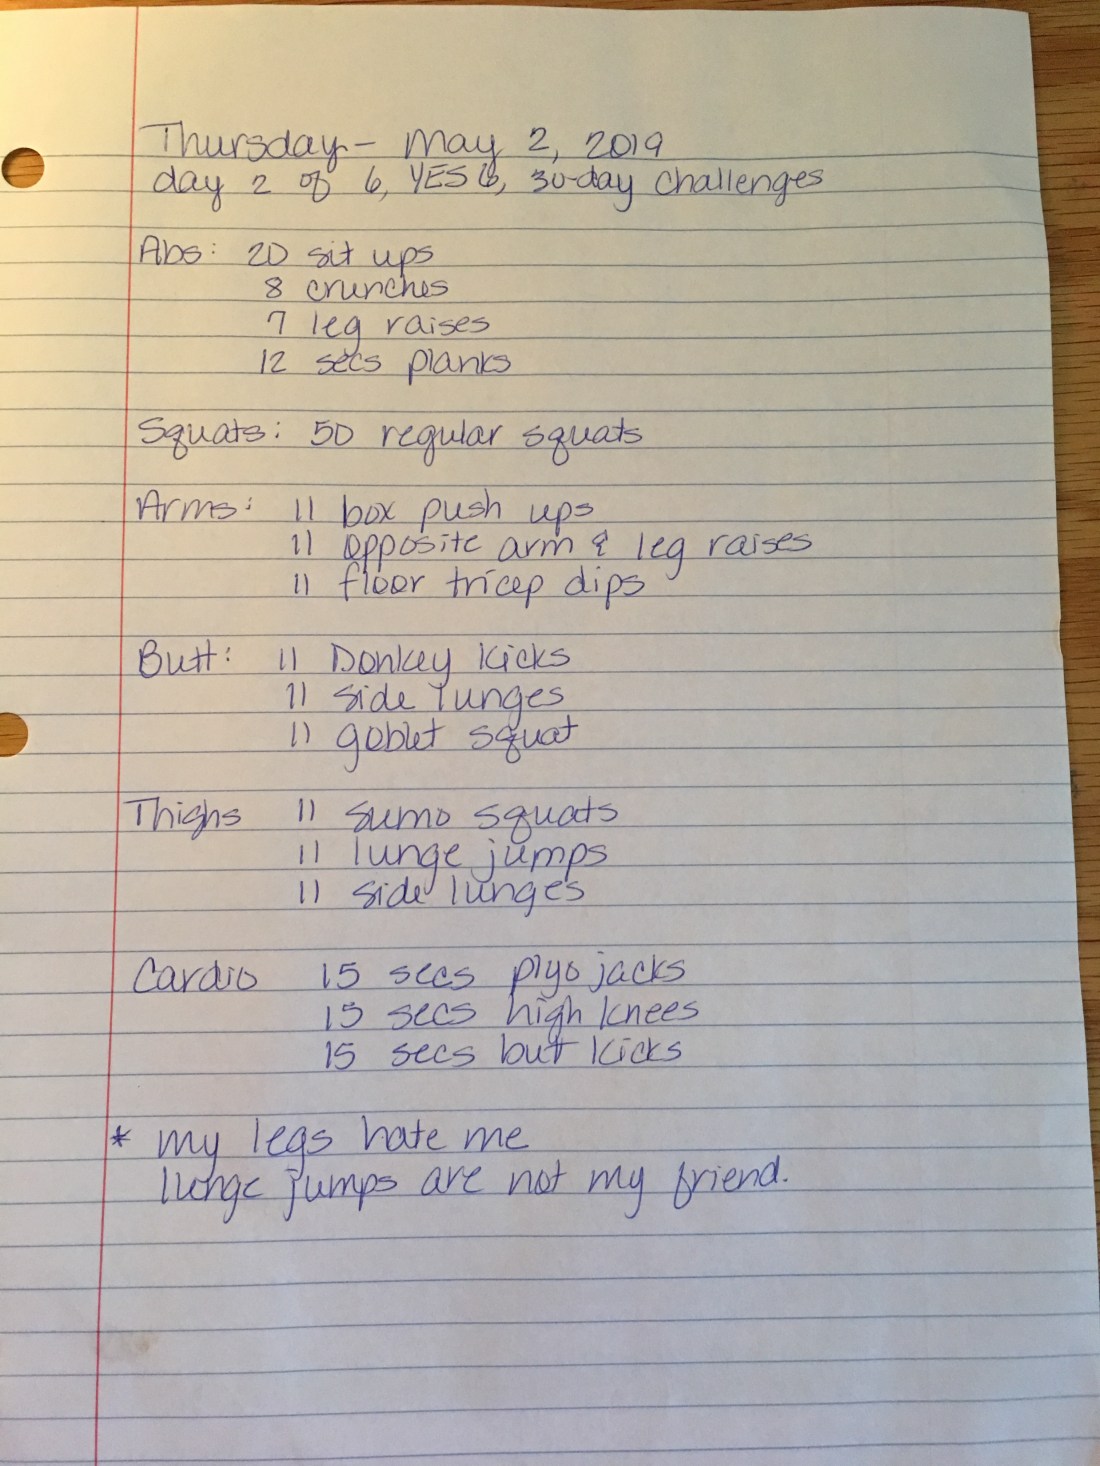 Thursday - May 2, 2019
day 2 of 6, YES 6, 30-day challenges
Abs: 20 sit ups
8 crunches
7 leg raises
12 secs planks
Squats: 50 regular squats
Arms: 11 box push ups
11 opposite arm & leg raises
11 floor tricep dips
Butt: 11 Donkey Kicks
11 side lunges
11 goblet squat
Thighs 11 sumo squats
11 lunge jumps
11 side lunges
Cardio 15 secs plyo jacks
15 secs high knees
15 secs butt kicks
* my legs hate me
lunge jumps are not my friend.